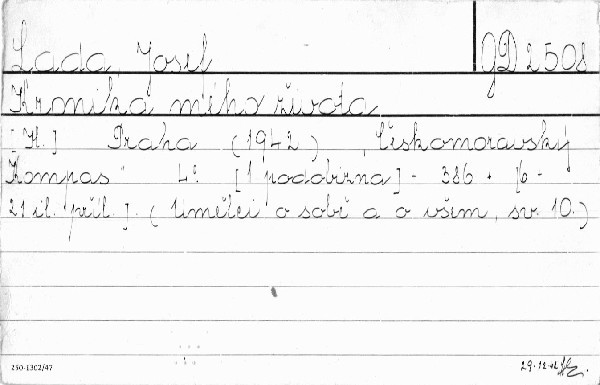 Lada, Josef GD 2508
Kronika mého života
[H.] Praha (1942), Českomoravský
Kompas 4° [1 podobizna] - 386 + [6 -
21 il. příl.]. (Umělci o sobě a o všem, sv. 10.)
230-1302/47 29.12.42